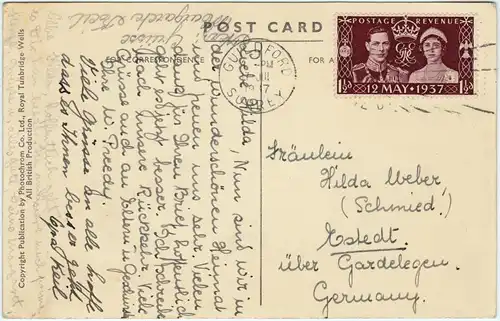 POST CARD
FOR CORRESPONDENCE
FOR A
Copyright Publication by Photochrom Co. Ltd., Royal Tunbridge Wells
All British Production
GUILDFORD
PM
SURREY
POSTAGE REVENUE
1½D 1½D
12 MAY 1937
Fräulein
Hilda Weber
(Schmied)
Estedt.
über Gardelegen.
Germany.
Liebe Hilda, Nun sind wir in
der wunderschönen Heimat
und freuen uns sehr. Vielen
Dank für Ihren Brief, hoffentlich
geht es jetzt besser. Ich schreibe
nach unsere Rückkehr. Viele
Grüsse auch an Eltern u. Geschwister
Ihre u. Freddy.
Viele Grüsse an alle hoffe
dass es Ihnen besser geht
Keil
Grüsse
Margarete Keil